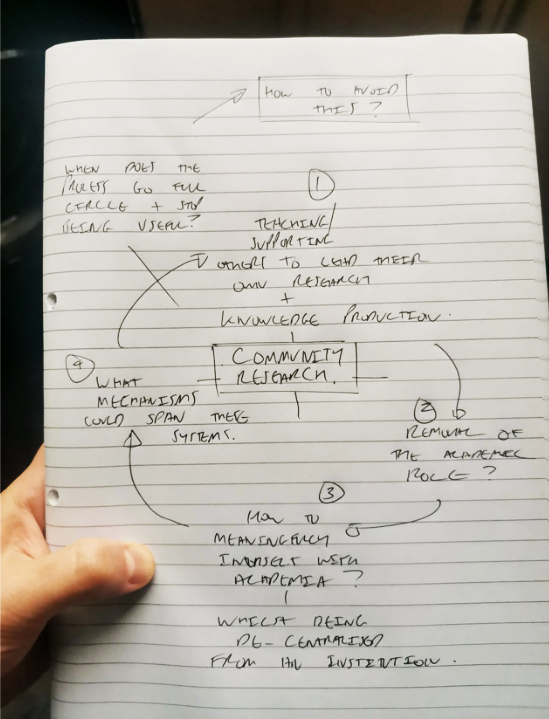 HOW TO AVOID
THIS?
WHEN DOES THE
PROCESS GO FULL
CIRCLE + STOP
BEING USEFUL?
1
TEACHING/
SUPPORTING
OTHERS TO LEAD THEIR
OWN RESEARCH
+
KNOWLEDGE PRODUCTION.
COMMUNITY
RESEARCH.
2
REMOVAL OF
THE ACADEMIC
ROLE?
3
HOW TO
MEANINGFULLY
INTERSECT WITH
ACADEMIA?
WHILST BEING
DE-CENTRALISED
FROM AN INSTITUTION.
4
WHAT
MECHANISMS
COULD SPAN THESE
SYSTEMS.